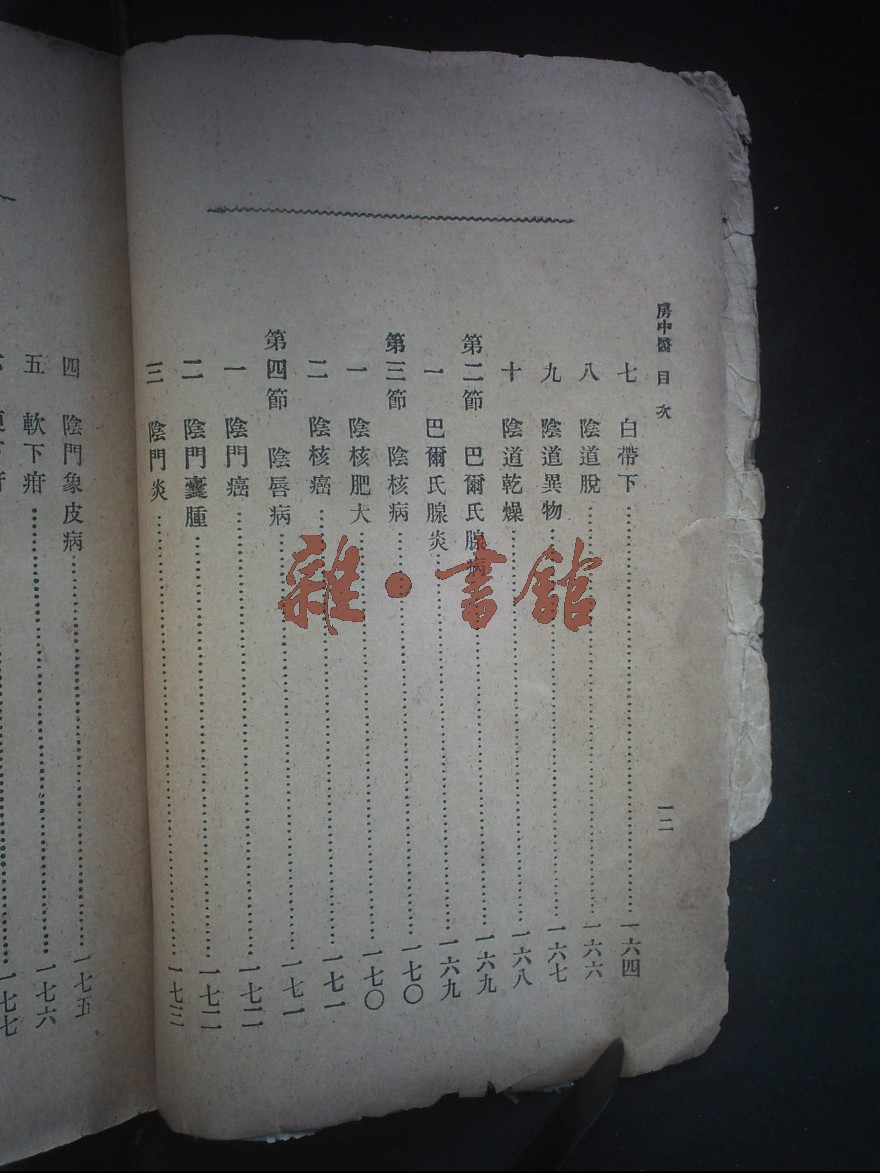 房中醫 目次
一二
七 白帶下……一六四
八 陰道脫……一六六
九 陰道異物……一六七
十 陰道乾燥……一六八
第二節 巴爾氏腺病……一六九
一 巴爾氏腺炎……一六九
第三節 陰核病……一七〇
一 陰核肥大……一七〇
二 陰核癌……一七一
第四節 陰唇病……一七一
一 陰門癌……一七二
二 陰門囊腫……一七二
三 陰門炎……一七三
四 陰門象皮病……一七五
五 軟下疳……一七六
一七七
雜·書館